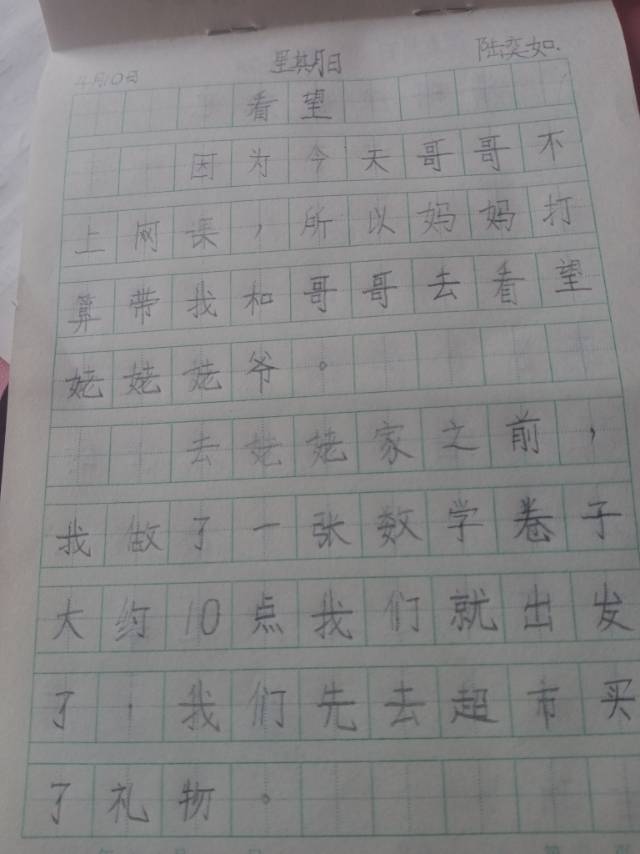 4月10日 星期日 陆奕如.
看望
因为今天哥哥不
上网课，所以妈妈打
算带我和哥哥去看望
姥姥姥爷。
去姥姥家之前，
我做了一张数学卷子
大约10点我们就出发
了，我们先去超市买
了礼物。